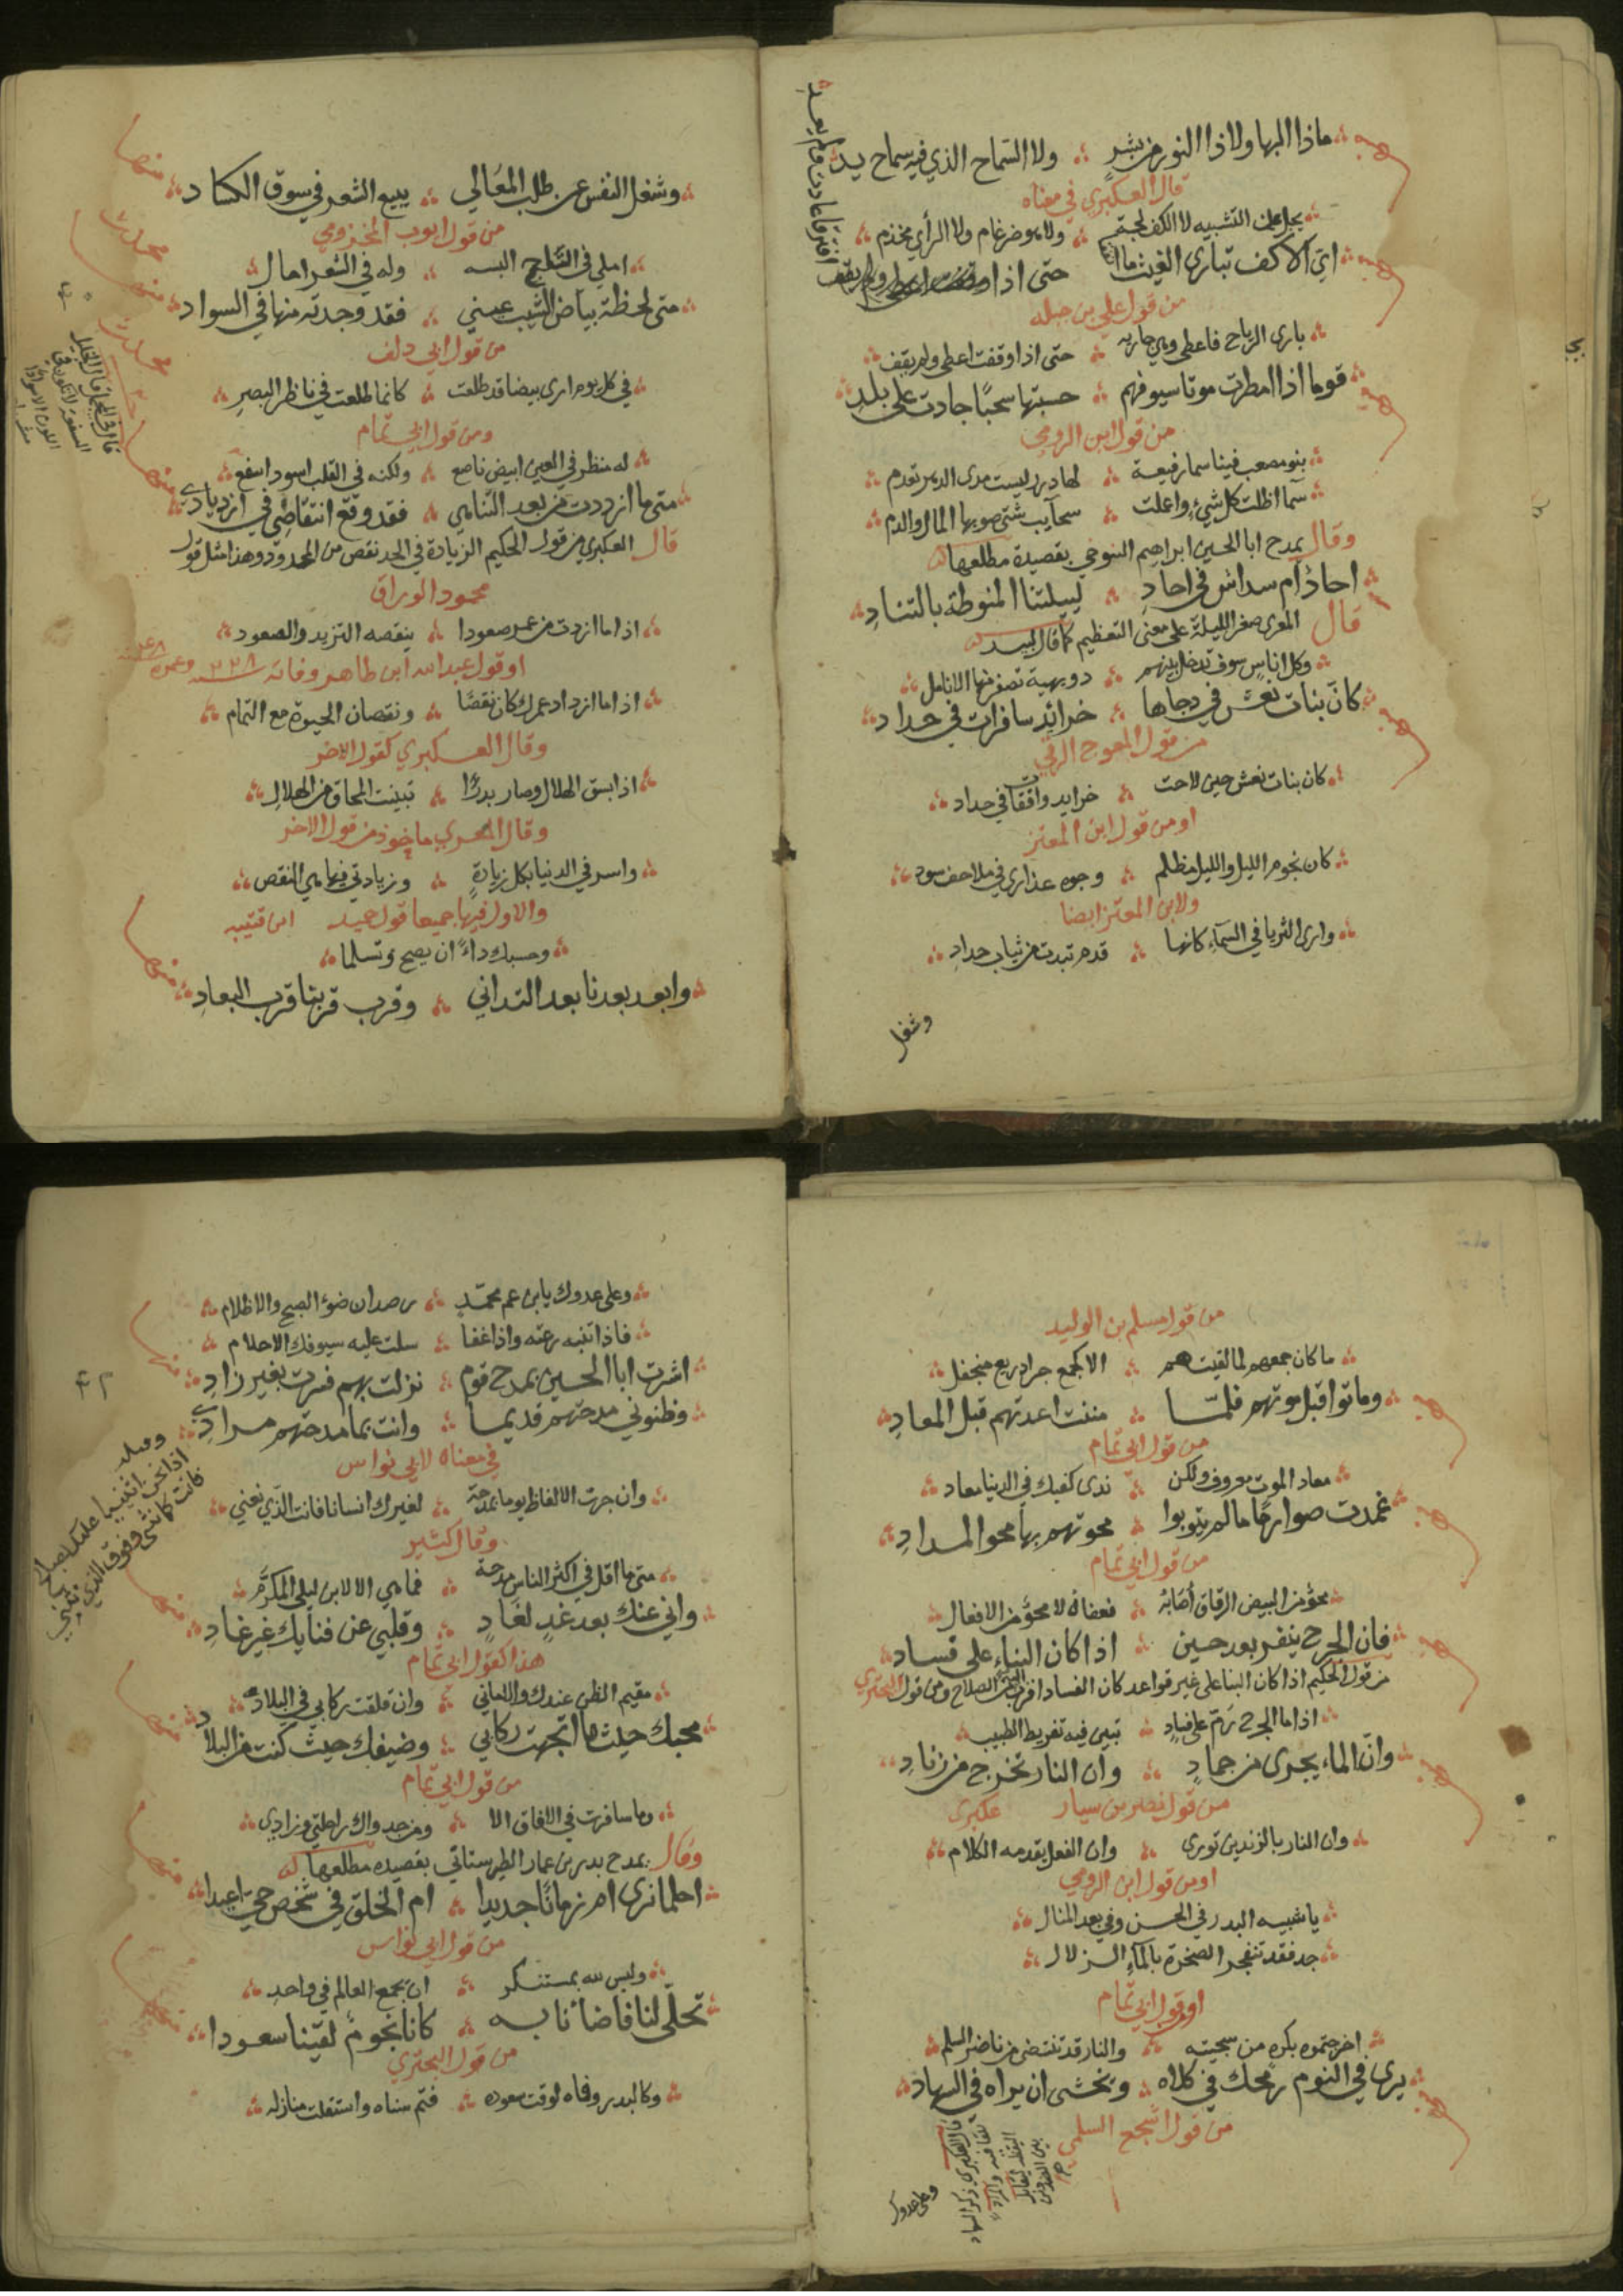 ماذا البها ولا ذا النور من بشر ولا السماح الذي فيه سماح يد
قال العكبري في معناه
يجل عن التشبيه لا الكف لجة ولا هو ضرغام ولا الرأي مخذم
اي الاكف تباري الغيث ما اتفقا حتى اذا
افترقا عادت ولم يعد
من قول علي بن جبله
باري الرياح فاعطى وهي جاريه حتى اذا وقفت اعطى ولم يقف
قوما اذا امطرت موتا سيوفهم حسبتها سحبًا جادت على بلدِ
من قول ابن الرومي
بنو مصعب فينا سما رفيعة لها درر ليست مدى الدهر تعدم
سما اظلت كل شيءٍ واعلت سحآيب شتى صوبها المال والدم
وقال يمدح ابا الحسين ابراهيم التنوخي بقصيدة مطلعها
احادٌ ام سداس في احادِ لييلتنا المنوطة بالتنادِ
قال المعري صغر الليلة على معنى التعظيم كما قال لبيد
وكل اناسٍ سوف تدخل بينهم دويهية تصفر منها الانامل
كانّ بنات نعش في دجاها خرائد سافرات في حداد
من قول المعوج الرقي
كان بنات نعش حين لاحت خرايد واقفات في حداد
او من قول ابن المعتز
كان نجوم الليل والليل مظلم وجوه عذارى في ملاحف سود
ولابن المعتز ايضا
وارى الثريا في السمآءِ كانها قدم تبدت من ثياب حداد
وشغل
وشغل النفس عن طلب المعَالي ببيع الشعر في سوق الكساد
من قول ايوب المخزومي
املي في التاج البسه وله في الشعر امال
متى لحظة بياض الشيب عيني فقد وجدته منها في السواد
من قول ابي دلف
في كل يوم ارى بيضا قد طلعت كانما طلعت في ناظر البصر
ومن قول ابي تمام
له منظر في العين ابيض ناصع ولكنه في القلب اسود اسفع
متى ما ازددت من بعد التناهي فقد وقع انتقاصي في ازديادي
قال العكبري من قول الحكيم الزيادة في الحد نقص من المحدود وهذا مثل قول
محمود الوراق
اذا ما ازددت من عمر صعودا ينقصه التزيد والصعود
او قول عبد الله ابن طاهر وفاته
اذا ما ازداد عمرك كان نقصًا ونقصان الحيوة مع التمام
وقال العكبري كقول الاخر
اذا اتسق الهلال وصار بدرًا تبينت المحاق من الهلال
وقال المعري ماخوذ من قول الاخر
واسر في الدنيا بكل زيادةٍ وزيادتي فيها هي النقص
والاول فيها جميعا قول حميد
وحسبك داءً ان يصح وتسلما
وابعد بعدنا بعد التداني وقرب قربنا قرب البعادِ
من قول مسلم بن الوليد
ما كان جمعهم لما لقيت هم الا كجمع جراد ريع منجفل
وماتوا قبل موتهم فلمّا مننت اعدتهم قبل المعادِ
من قول ابي تمام
معاد الموت معروف ولكن ندى كفيك في الدنيا معاد
غمدت صوارمًا ما لم يتوبوا محوتهم بها محو المدادِ
من قول ابي تمام
فعفاهُ لا محوٌ من الافعال
فان الجرح ينفر بعد حين اذا كان البناء على فساد
من قول الحكيم اذا كان البنا على غير قواعد كان الفساد اقرب اليه من الصلاح ومن قول البحتري
اذا ما الجرح رمّ على فسادٍ تبين فيه تفريط الطبيب
وانّ الماء يجرى من جمادٍ وان النار تخرج من زنادِ
من قول نصر بن سيار عكبرى
وان النار بالزندين تورى وان الفعل يقدمه الكلام
او من قول ابن الرومي
يا شبيه البدر في الحسن وفي بعد المنال
جد فقد تنفجر الصخرة بالمآءِ الزلال
او قول ابي تمام
اخرجتموه بكره من سجيته والنار قد تنتضى من ناضر السلم
يرى في النوم رمحك في كلاه وتخشى ان يراه في السهاد
من قول اشجع السلمى
وعلى عدوك
وعلى عدوك يا بن عم محمّدٍ رصدان ضوءُ الصبح والاظلام
فاذا تنبه رعته واذا غفا سلت عليه سيوفك الاحلام
اشرت ابا الحسين بمدح قوم نزلت بهم فسرت بغير زادِ
وظنوني مدحتهم قديمًا وانت بما مدحتهم مرادي
في معناه لابي نواس
وان جرت الالفاظ يوما بمدحة لغيرك انسانا فانت الذي نعني
وقال كثير
متى ما اقل في اكثر الناس مدحة فما هي الا لابن ليلى المكرّم
واني عنك بعد غدٍ لغَادٍ وقلبي عن فنايك غير غادِ
هذا كقول ابي تمام
مقيم الظن عندك والاماني وان قلقت ركابي في البلاد
محبك حيث ما اتجهت ركابي وضيفك حيث كنت من البلاد
من قول ابي تمام
وما سافرت في الافاق الا ومن جدواك راحلتي وزادي
وقال يمدح بدر بن عمار الطبرستاني بقصيده مطلعها
احلما نرى ام زمانًا جديدا ام الخلق في شخص حيّ اعيدا
من قول ابي نواس
وليس لله بمستنكر ان يجمع العالم في واحد
تجلّى لنا فاضأنا به كانا نجومٌ لقينا سعودا
من قول البحتري
وكالبدر وفاه لوقت سعوده فتم سناه واستقلت منازله